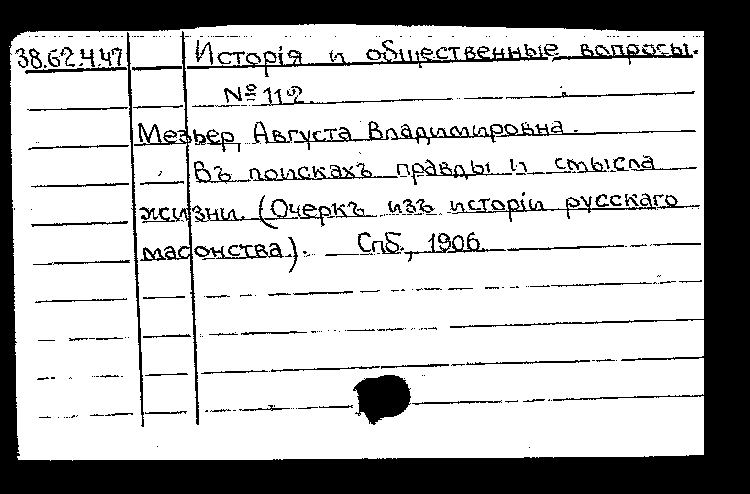 38.62.4.47 Исторія и общественные вопросы.
№ 112.
Мезьер, Августа Владимировна.
Въ поискахъ правды и смысла
жизни. (Очеркъ изъ исторіи русскаго
масонства.). Спб., 1906.